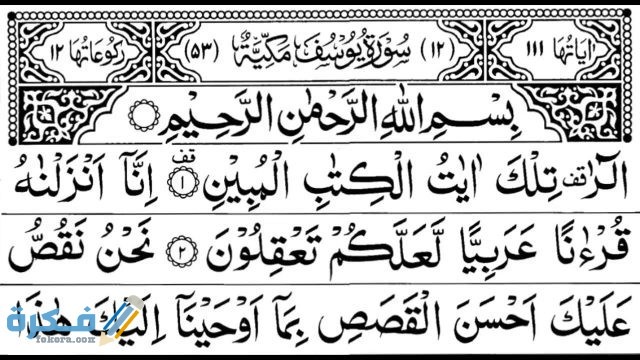 اٰيَاتُهَا ١١١ (١٢) سُوْرَةُ يُوْسُفَ مَكِّيَّةٌ (٥٣) رُكُوْعَاتُهَا ١٢
بِسْمِ اللّٰهِ الرَّحْمٰنِ الرَّحِيْمِ
الٓرٰ قف تِلْكَ اٰيٰتُ الْكِتٰبِ الْمُبِيْنِ ١ قف اِنَّآ اَنْزَلْنٰهُ
قُرْءٰنًا عَرَبِيًّا لَّعَلَّكُمْ تَعْقِلُوْنَ ٢ نَحْنُ نَقُصُّ
عَلَيْكَ اَحْسَنَ الْقَصَصِ بِمَآ اَوْحَيْنَآ اِلَيْكَ هٰذَا
فكرة
fokora.com